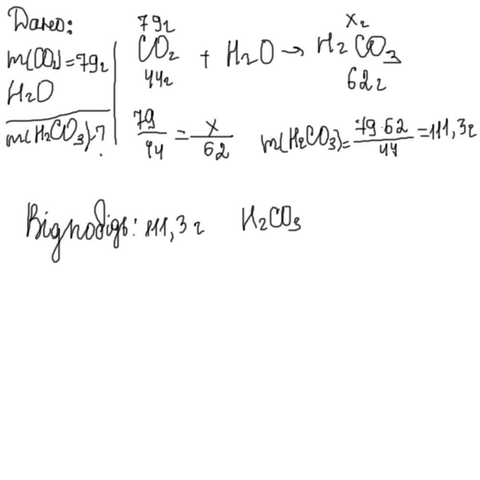 Дано:
m(CO₂)=79г
H₂O
m(H₂CO₃)-?
79г xг
CO₂ + H₂O → H₂CO₃
44г 62г
79/44 = x/62 m(H₂CO₃)= 79·62/44 =111,3г
Відповідь: 111,3г H₂CO₃